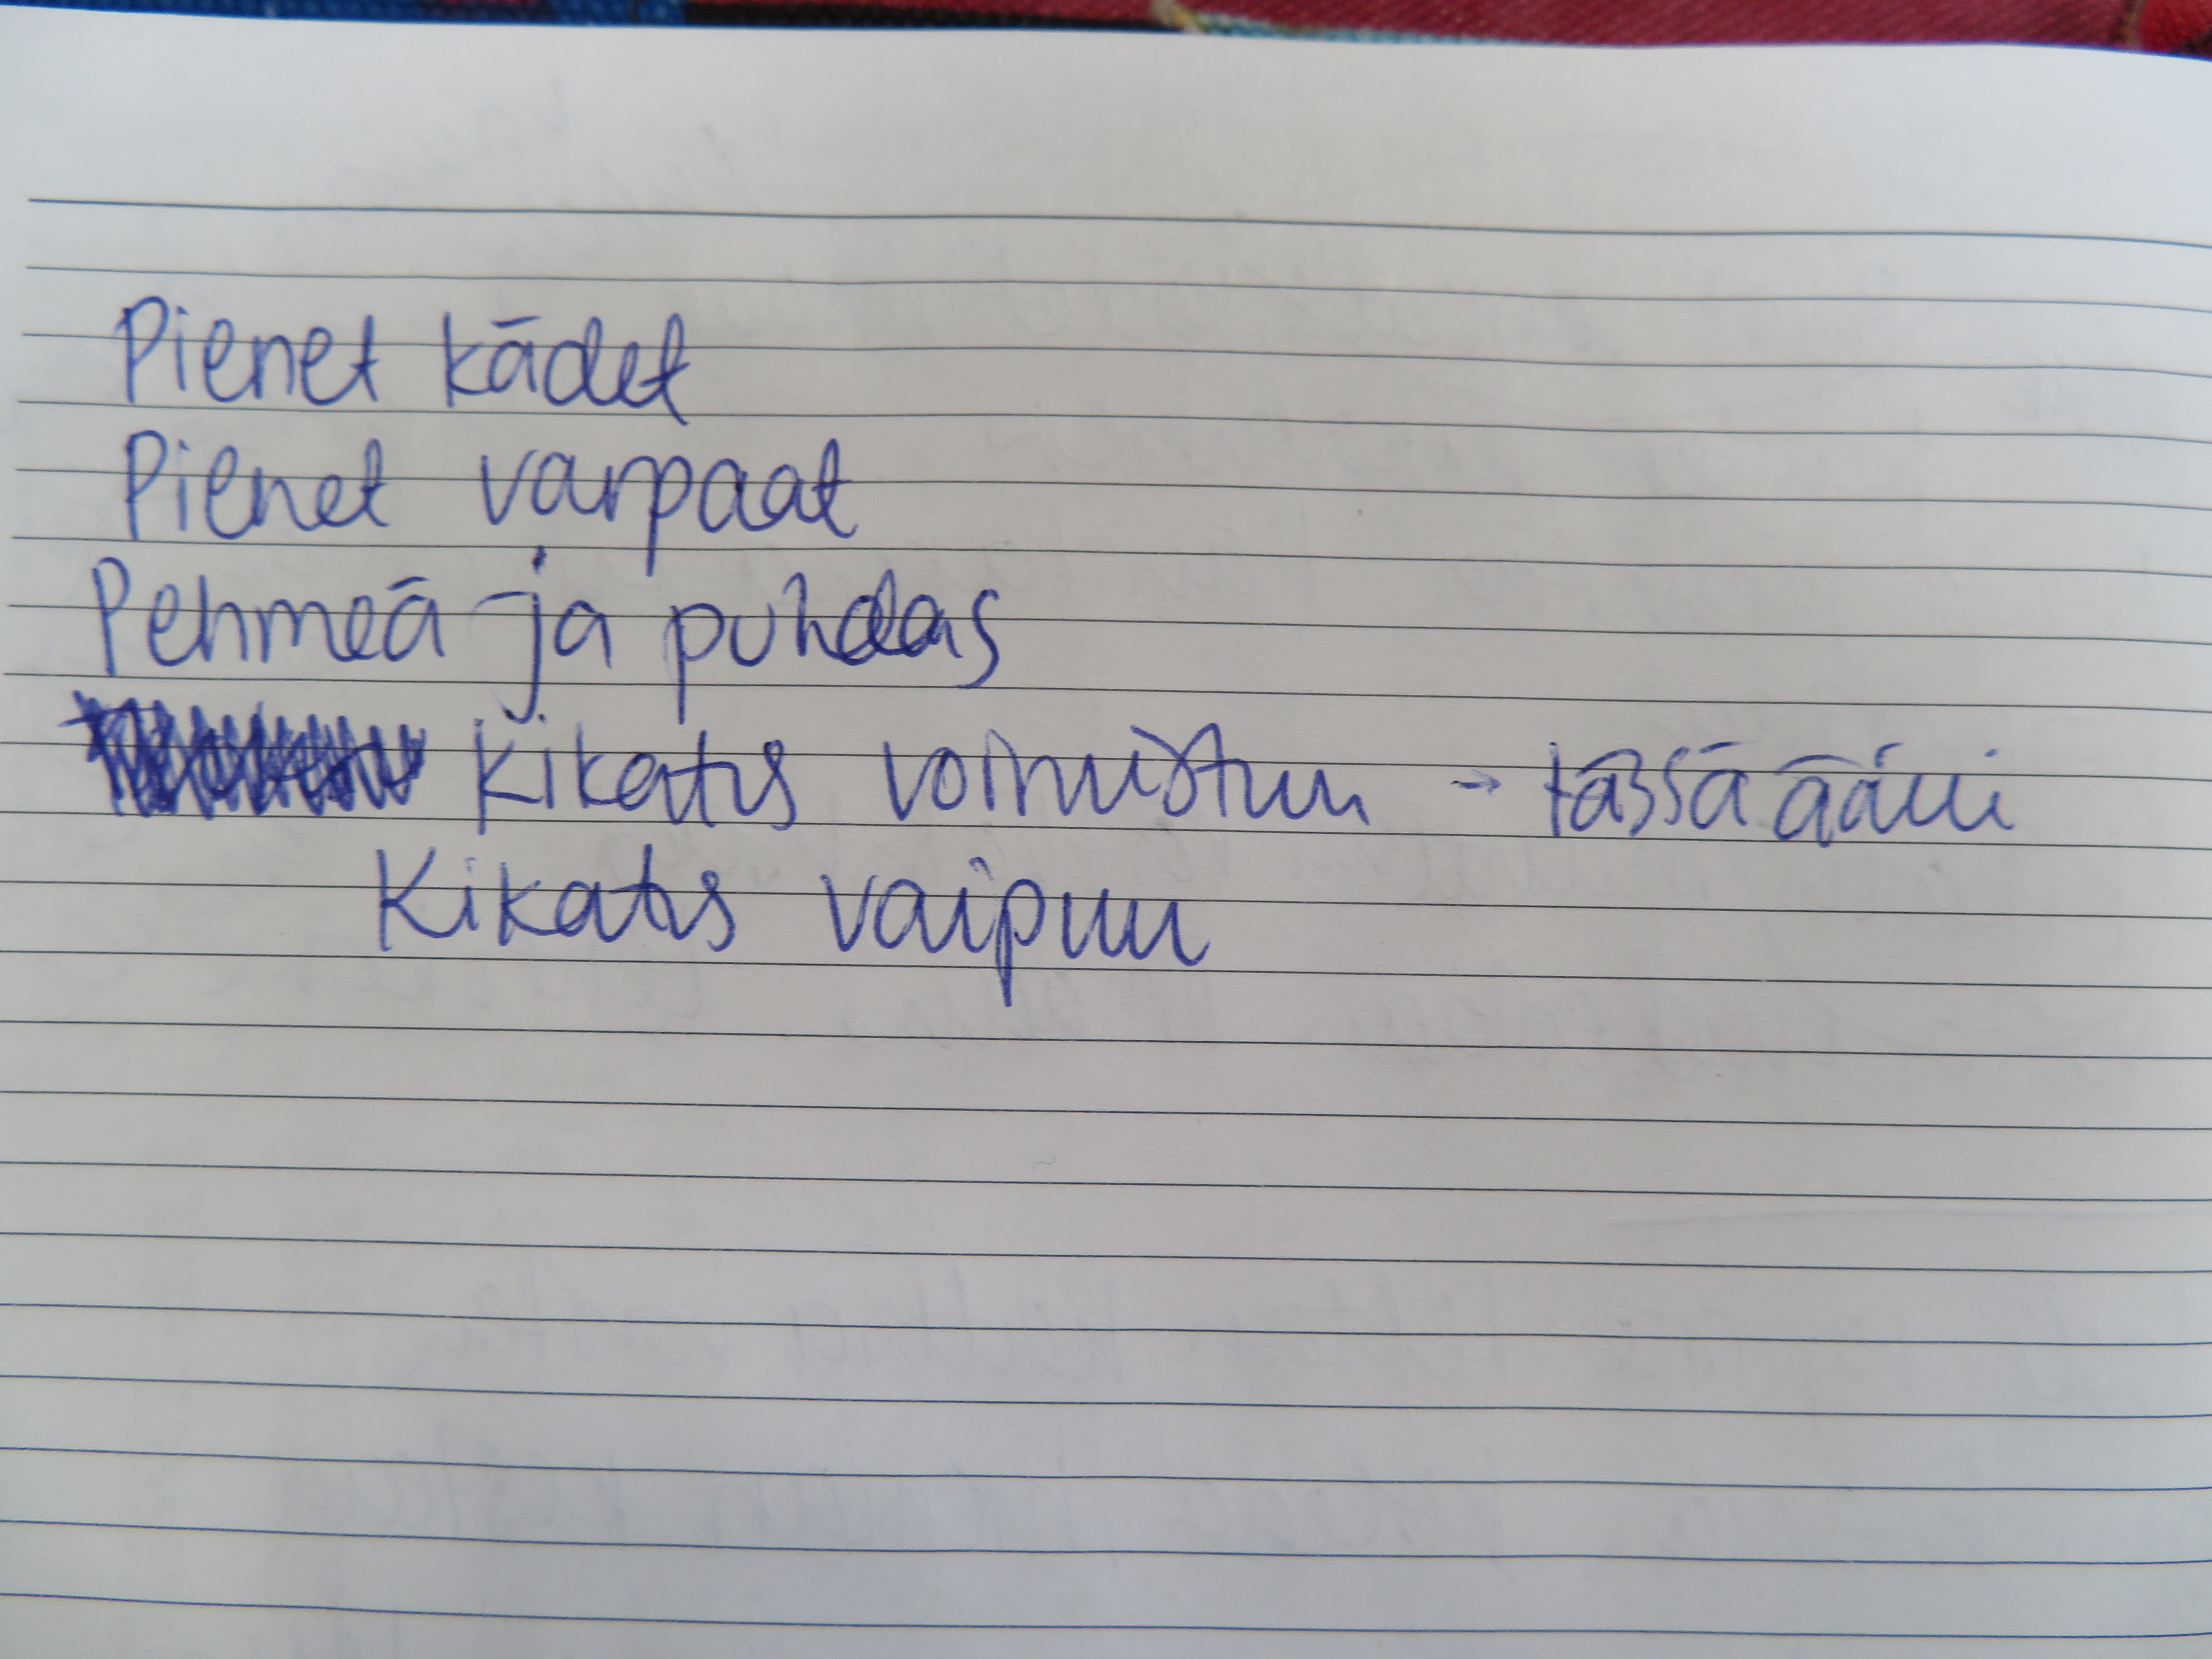 Pienet kädet
Pienet varpaat
Pehmeä ja puhdas
Kikatus voimistuu → tässä ääni
Kikatus vaipuu